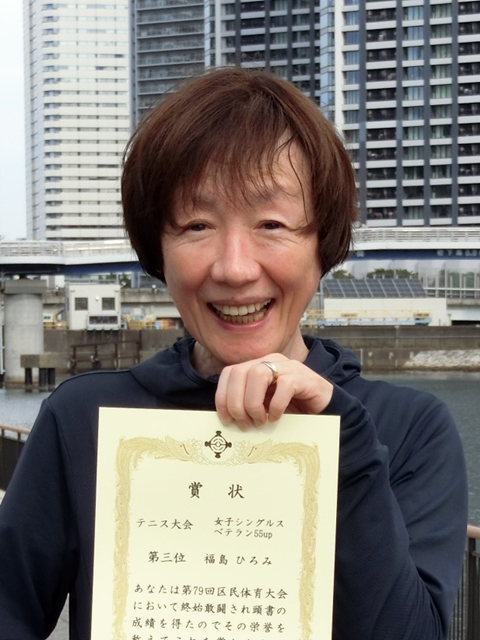 賞状
テニス大会 女子シングルス
ベテラン55up
第三位 福島 ひろみ
あなたは第79回区民体育大会
において終始敢闘され頭書の
成績を得たのでその栄誉を